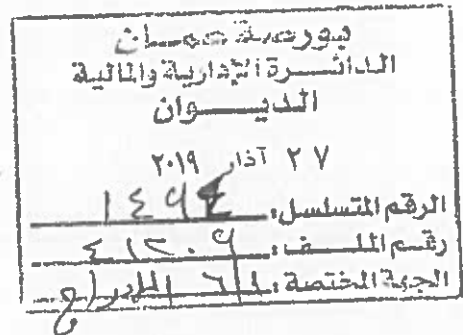 بورصة عمان
الدائرة الإدارية والمالية
الديوان
٢٧ آذار ٢٠١٩
الرقم المتسلسل:
رقم الملف: ٤١٢٠٩
الجهة المختصة: